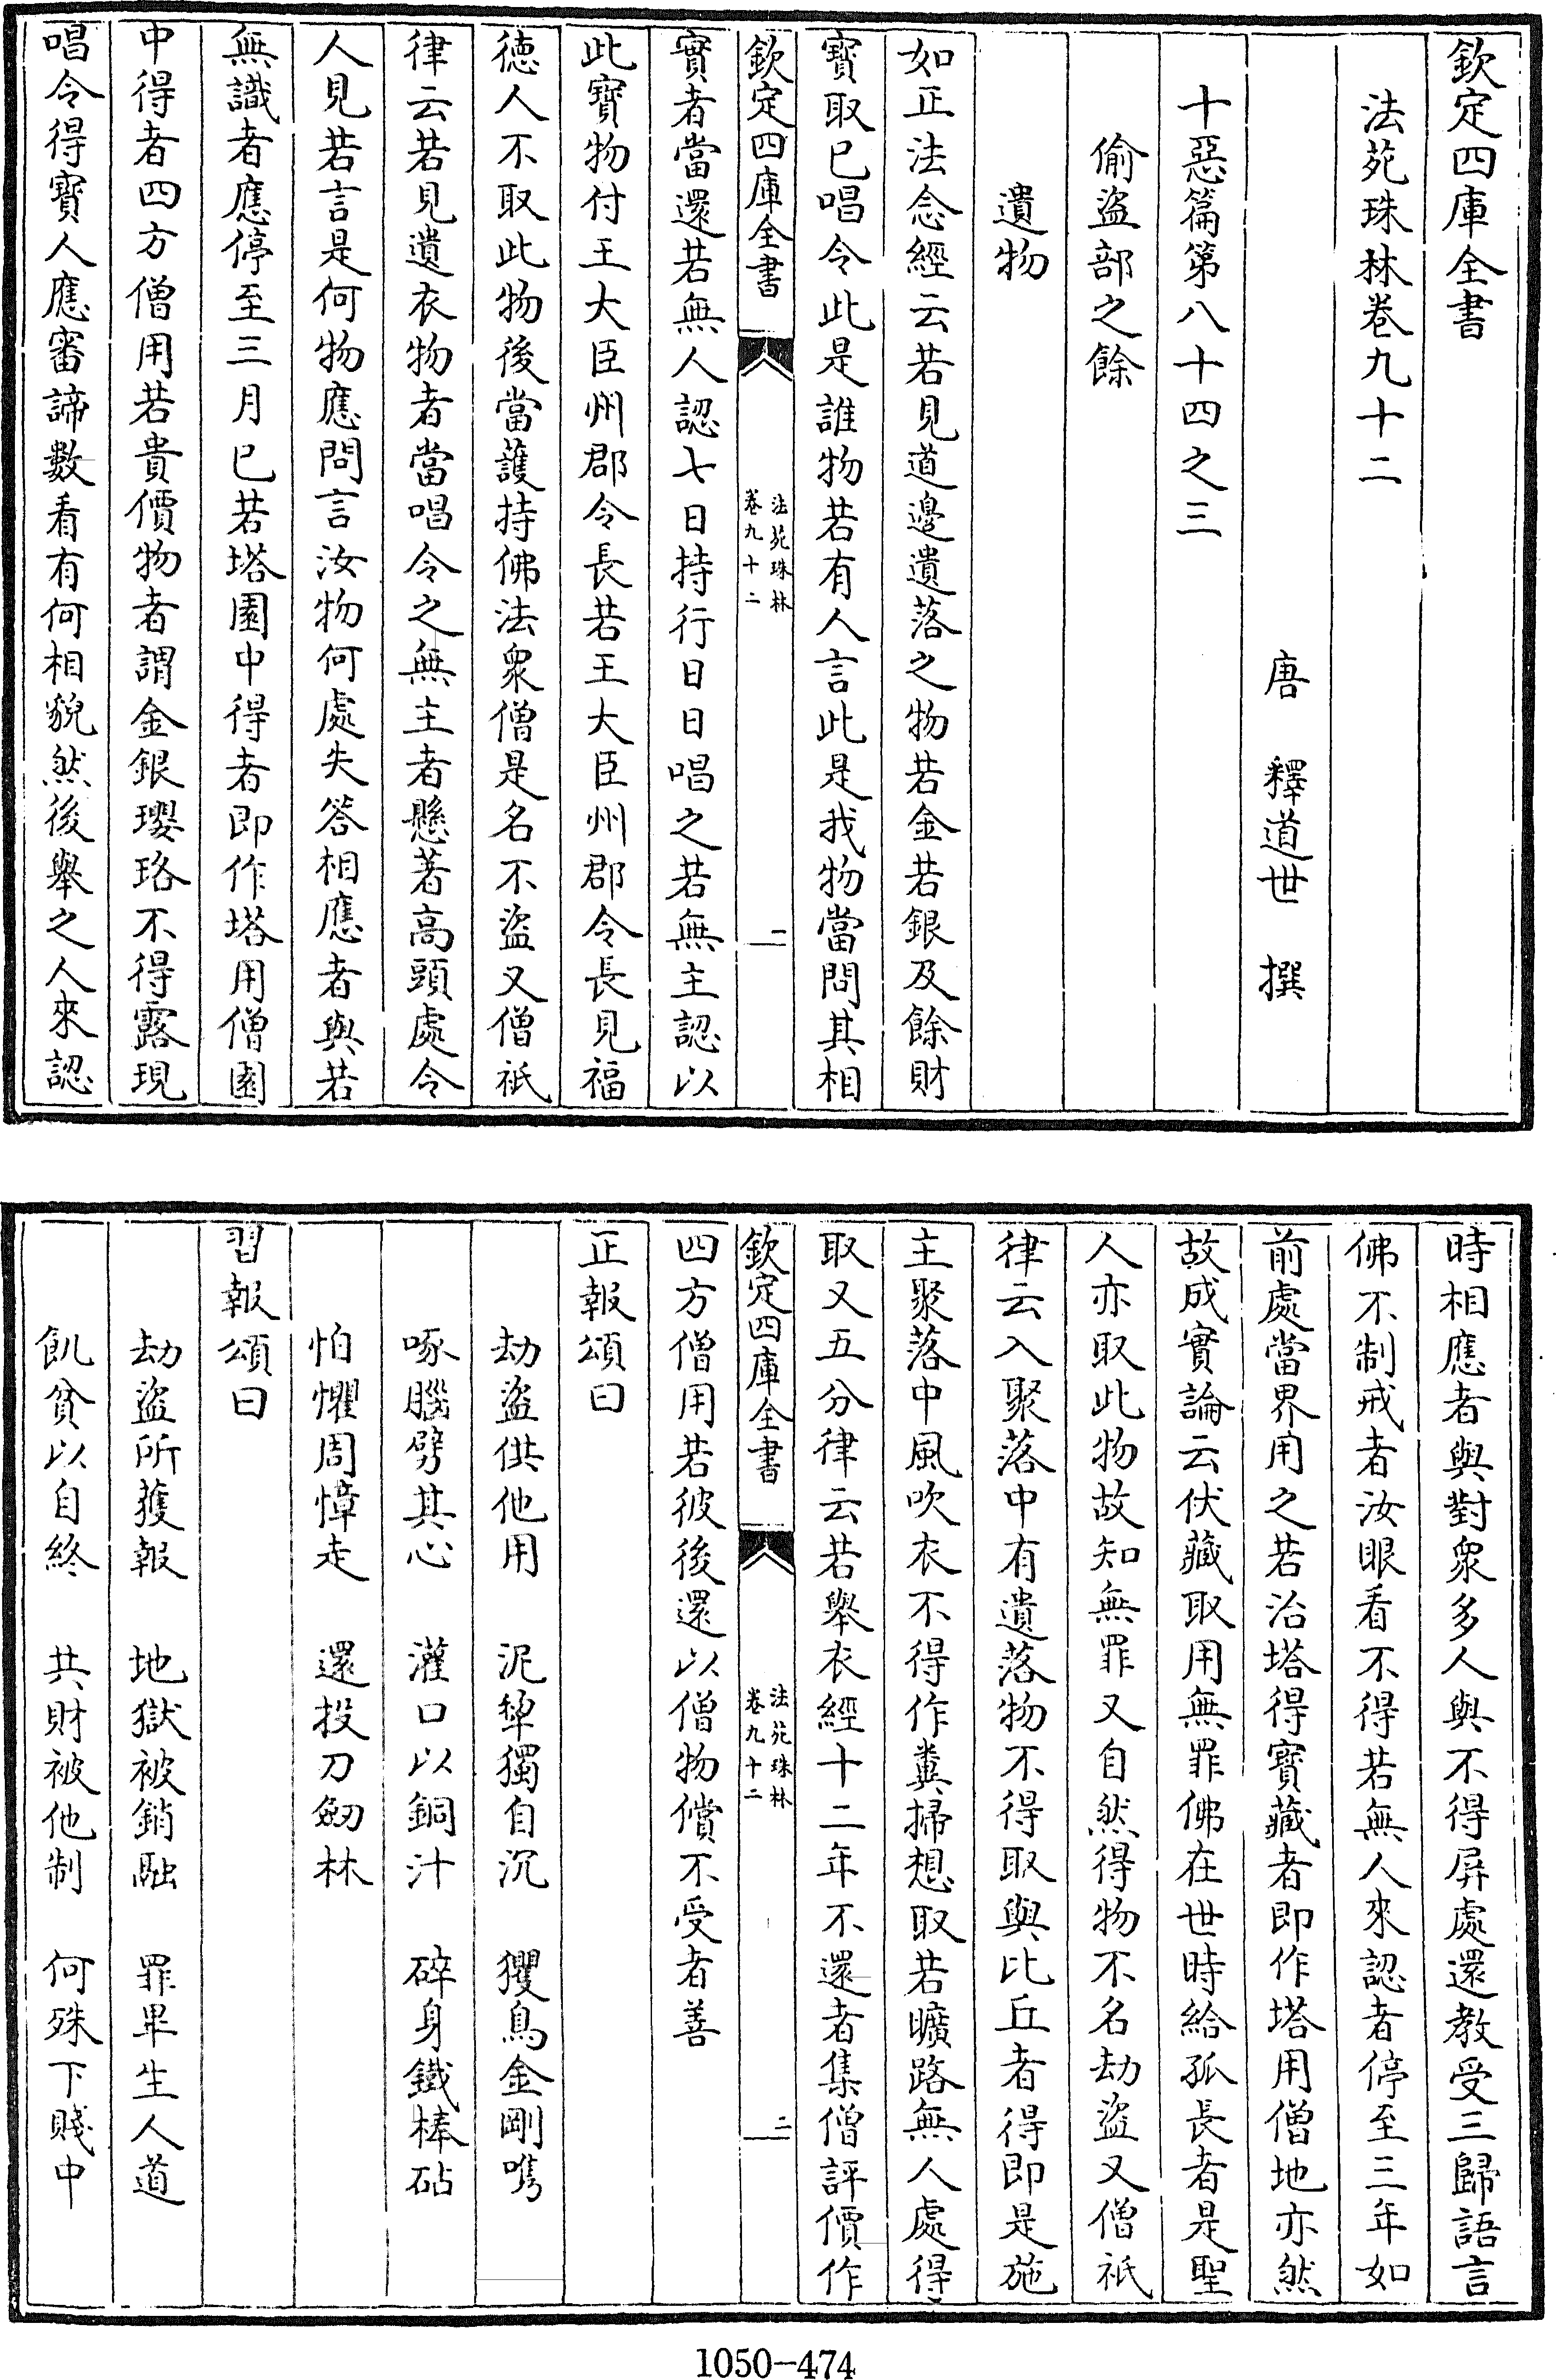 欽定四庫全書
法苑珠林卷九十二
唐　釋道世　撰
十惡篇第八十四之三
偷盜部之餘
遺物
如正法念經云若見道邊遺落之物若金若銀及餘財
寶取已唱令此是誰物若有人言此是我物當問其相
欽定四庫全書
法苑珠林
卷九十二
一
實者當還若無人認七日持行日日唱之若無主認以
此寶物付王大臣州郡令長若王大臣州郡令長見福
德人不取此物後當護持佛法眾僧是名不盜又僧祇
律云若見遺衣物者當唱令之無主者懸著高頭處令
人見若言是何物應問言汝物何處失答相應者與若
無識者應停至三月已若塔園中得者即作塔用僧園
中得者四方僧用若貴價物者謂金銀瓔珞不得露現
唱令得寶人應審諦數看有何相貌然後舉之人來認
時相應者與對眾多人與不得屏處還教受三歸語言
佛不制戒者汝眼看不得若無人來認者停至三年如
前處當界用之若治塔得寶藏者即作塔用僧地亦然
故成實論云伏藏取用無罪佛在世時給孤長者是聖
人亦取此物故知無罪又自然得物不名劫盜又僧祇
律云入聚落中有遺落物不得取與比丘者得即是施
主聚落中風吹衣不得作糞掃想取若曠路無人處得
取又五分律云若舉衣經十二年不還者集僧評價作
欽定四庫全書
法苑珠林
卷九十二
二
四方僧用若彼後還以僧物償不受者善
正報頌曰
劫盜供他用　泥犂獨自沉　玃鳥金剛嘴
啄腦劈其心　灌口以銅汁　碎身鐵棒砧
怕懼周慞走　還投刀劒林
習報頌曰
劫盜所獲報　地獄被銷融　罪畢生人道
飢貧以自終　共財被他制　何殊下賤中
1050-474